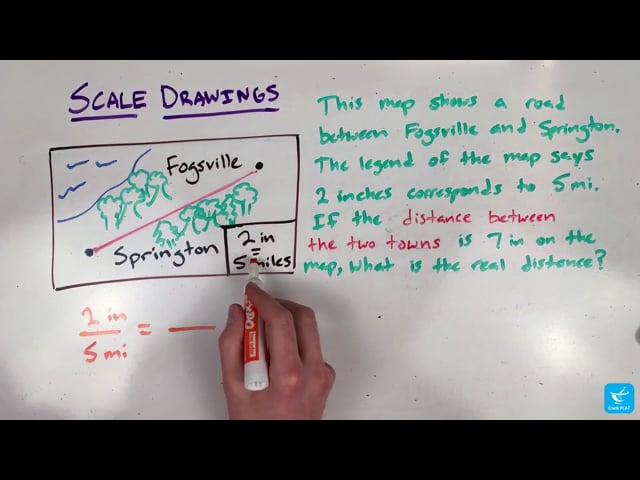 SCALE DRAWINGS
Fogsville
Springton
2 in
=
5 miles
2 in
5 mi
=
This map shows a road
between Fogsville and Springton.
The legend of the map says
2 inches corresponds to 5mi.
If the distance between
the two towns is 7 in on the
map, what is the real distance?
Crash PCAT